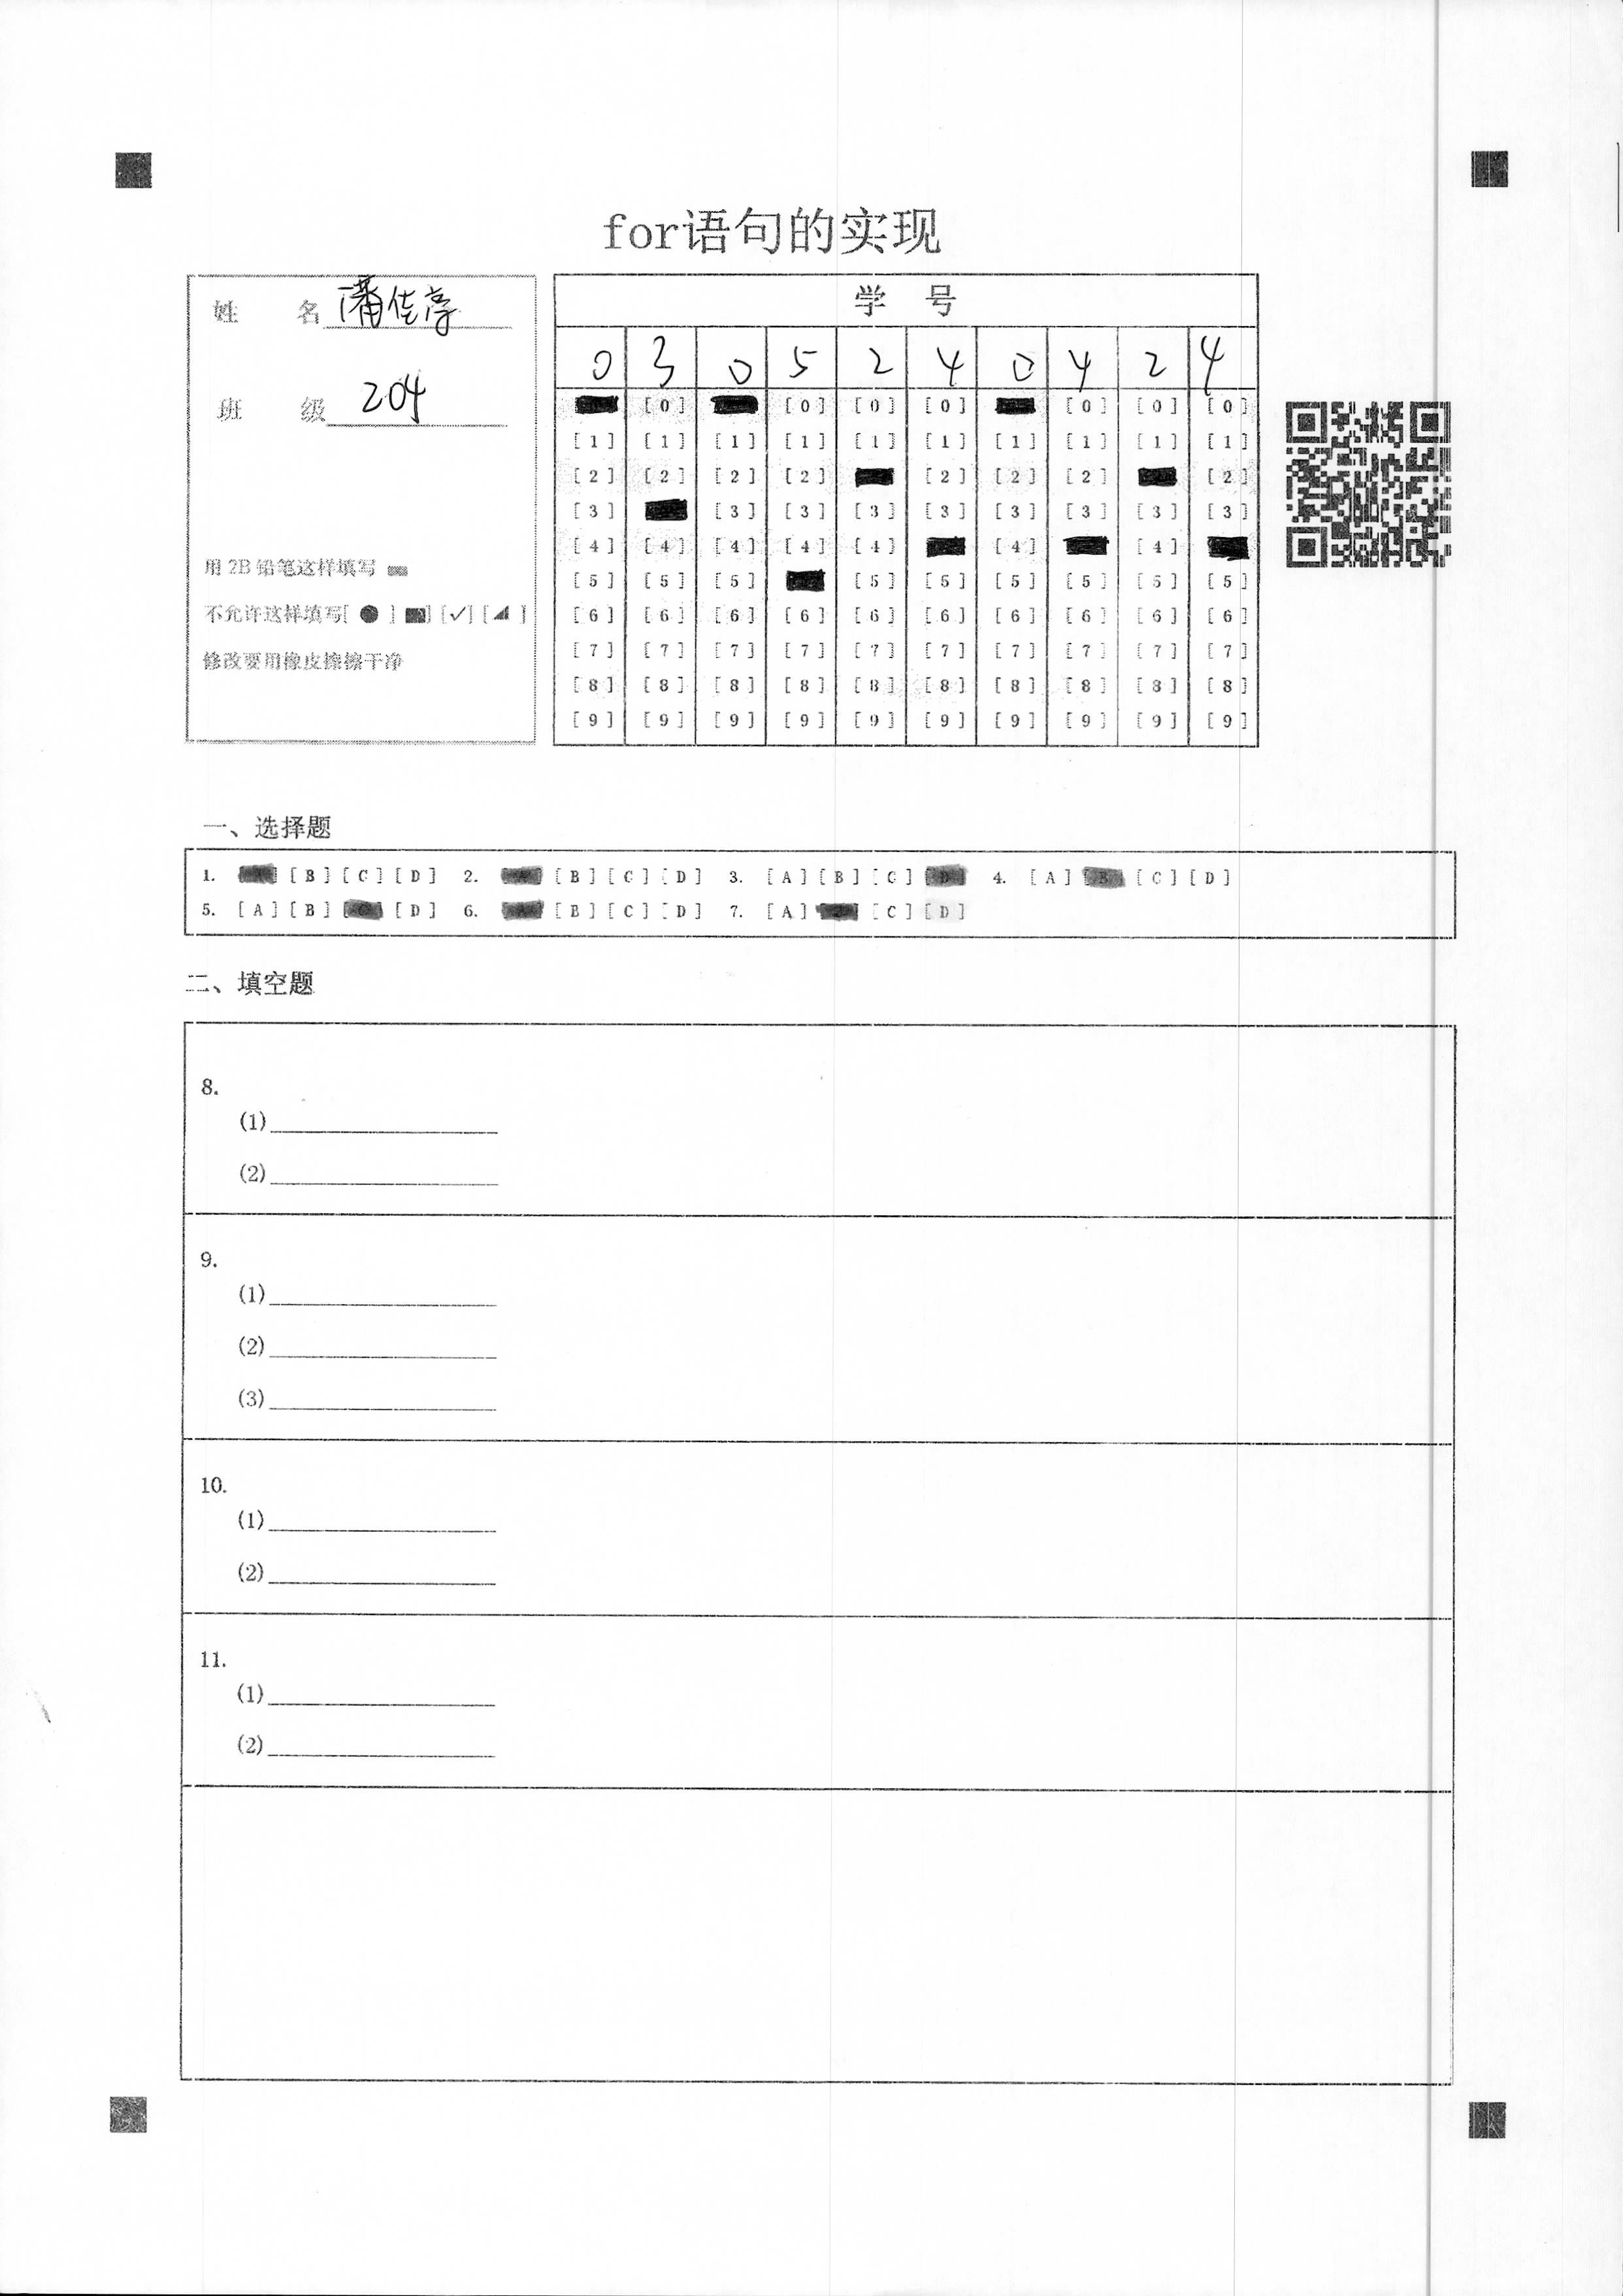 for语句的实现
姓 名 潘佳淳
班 级 204
用 2B 铅笔这样填写
不允许这样填写[ ● ] [■] [✓] [◢ ]
修改要用橡皮擦擦干净
学 号
0 3 0 5 2 4 0 4 2 4
[0] [0] [0] [0] [0] [0] [0]
[1] [1] [1] [1] [1] [1] [1] [1] [1] [1]
[2] [2] [2] [2] [2] [2] [2] [2]
[3] [3] [3] [3] [3] [3] [3] [3] [3]
[4] [4] [4] [4] [4] [4] [4]
[5] [5] [5] [5] [5] [5] [5] [5] [5]
[6] [6] [6] [6] [6] [6] [6] [6] [6] [6]
[7] [7] [7] [7] [7] [7] [7] [7] [7] [7]
[8] [8] [8] [8] [8] [8] [8] [8] [8] [8]
[9] [9] [9] [9] [9] [9] [9] [9] [9] [9]
一、选择题
1. [A] [B] [C] [D] 2. [A] [B] [C] [D] 3. [A] [B] [C] [D] 4. [A] [B] [C] [D]
5. [A] [B] [C] [D] 6. [A] [B] [C] [D] 7. [A] [B] [C] [D]
二、填空题
8.
(1)
(2)
9.
(1)
(2)
(3)
10.
(1)
(2)
11.
(1)
(2)